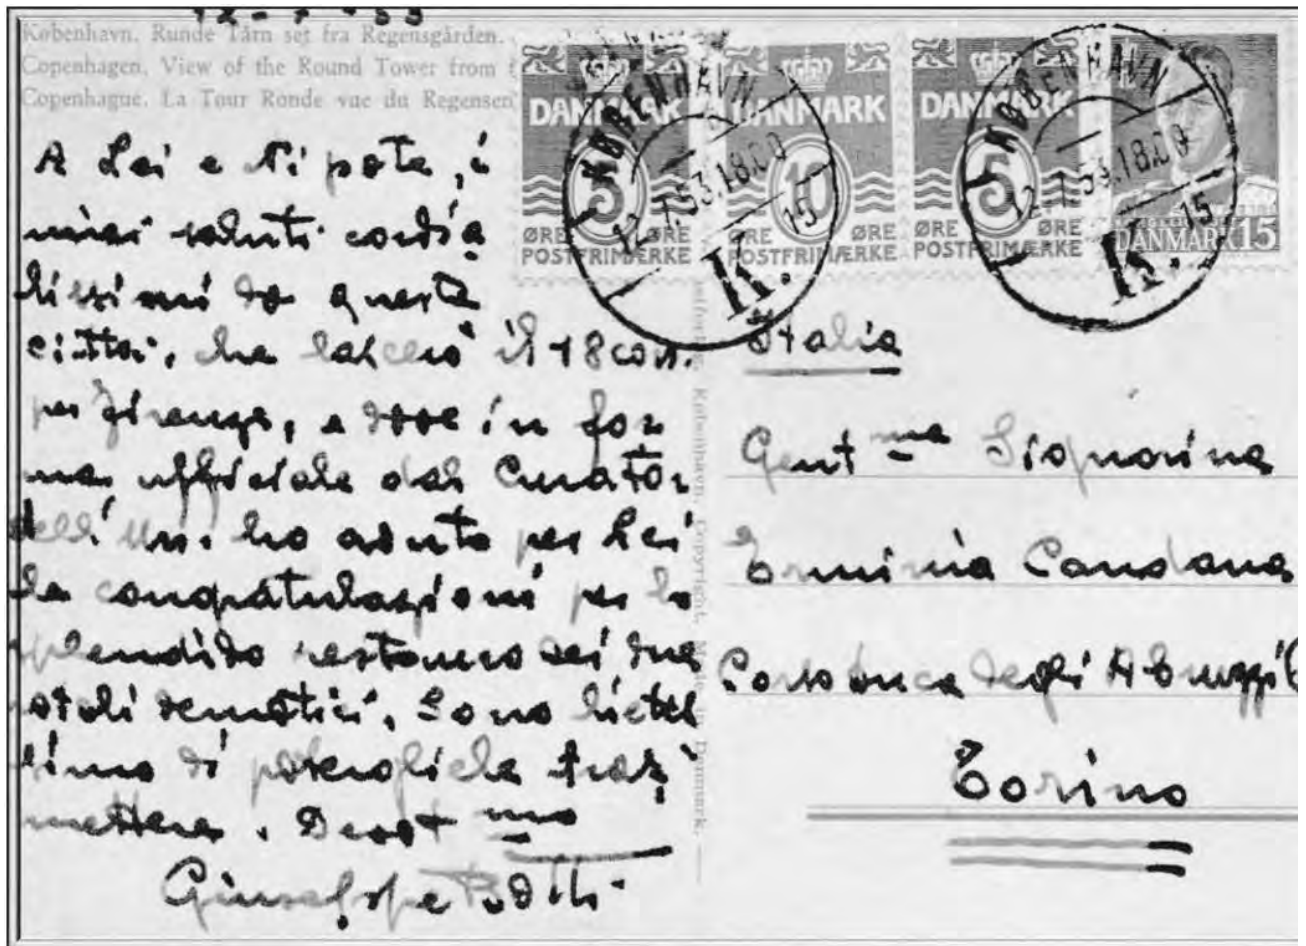 12-7-53
København. Runde Tårn set fra Regensgården.
Copenhagen. View of the Round Tower from
Copenhague. La Tour Ronde vue du Regensen
DANMARK 5 ØRE ØRE POSTFRIMÆRKE
DANMARK 10 ØRE ØRE POSTFRIMÆRKE
DANMARK 5 ØRE ØRE POSTFRIMÆRKE
DANMARK 15
KØBENHAVN K. 12.7.53.18.00 15
KØBENHAVN K. 12.7.53.18.00 15
A Lei e Nipote, i
miei saluti cordia
lissimi da questa
città, che lascerò il 18 corr.
per Firenze, e dove in for
ma ufficiale dai Curatori
dell'Uni. ho avuto per Lei
le congratulazioni per lo
splendido restauro dei due
rotoli demotici. Sono lietis
simo di poterglielo tras
mettere. Devot mo
Giuseppe Botti
København. Copyright. Denmark.
Italia
Gent ma Signorina
Erminia Caudana
Corso Duca degli Abruzzi 6
Torino